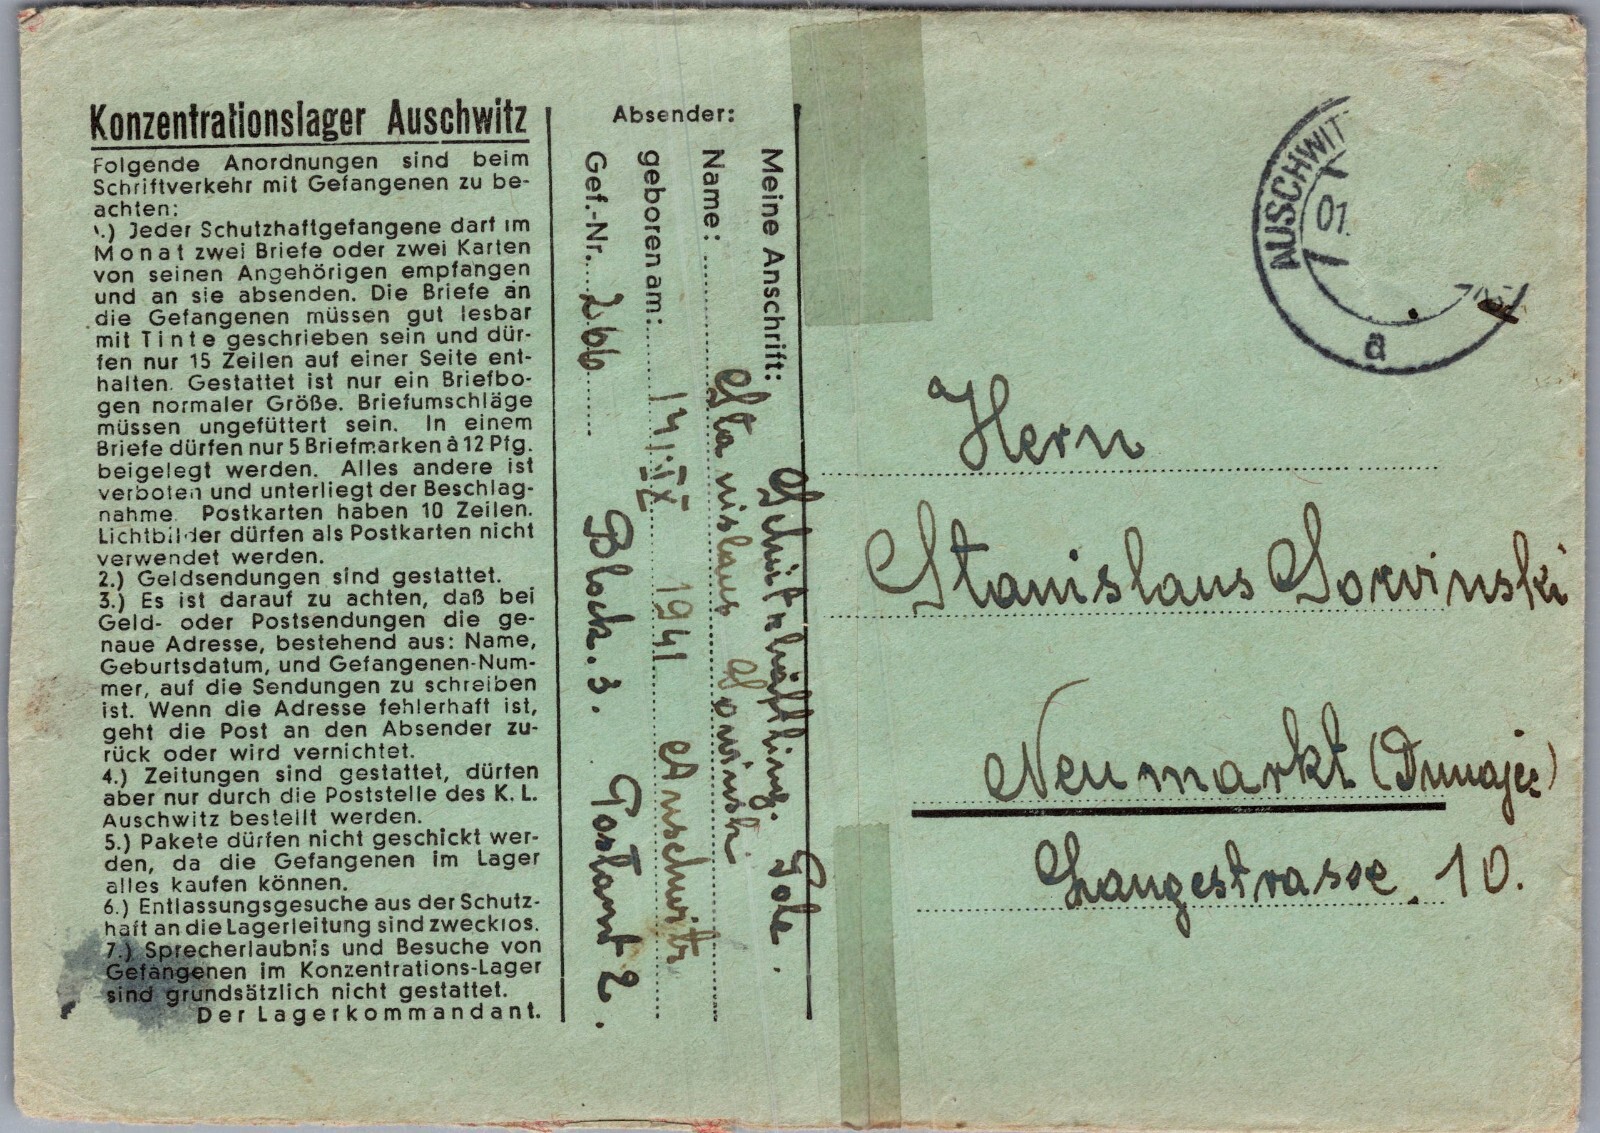 Konzentrationslager Auschwitz
Folgende Anordnungen sind beim
Schriftverkehr mit Gefangenen zu be-
achten:
1.) Jeder Schutzhaftgefangene darf im
Monat zwei Briefe oder zwei Karten
von seinen Angehörigen empfangen
und an sie absenden. Die Briefe an
die Gefangenen müssen gut lesbar
mit Tinte geschrieben sein und dür-
fen nur 15 Zeilen auf einer Seite ent-
halten. Gestattet ist nur ein Briefbo-
gen normaler Größe. Briefumschläge
müssen ungefüttert sein. In einem
Briefe dürfen nur 5 Briefmarken à 12 Pfg.
beigelegt werden. Alles andere ist
verboten und unterliegt der Beschlag-
nahme. Postkarten haben 10 Zeilen.
Lichtbilder dürfen als Postkarten nicht
verwendet werden.
2.) Geldsendungen sind gestattet.
3.) Es ist darauf zu achten, daß bei
Geld- oder Postsendungen die ge-
naue Adresse, bestehend aus: Name,
Geburtsdatum, und Gefangenen-Num-
mer, auf die Sendungen zu schreiben
ist. Wenn die Adresse fehlerhaft ist,
geht die Post an den Absender zu-
rück oder wird vernichtet.
4.) Zeitungen sind gestattet, dürfen
aber nur durch die Poststelle des K. L.
Auschwitz bestellt werden.
5.) Pakete dürfen nicht geschickt wer-
den, da die Gefangenen im Lager
alles kaufen können.
6.) Entlassungsgesuche aus der Schutz-
haft an die Lagerleitung sind zwecklos.
7.) Sprecherlaubnis und Besuche von
Gefangenen im Konzentrations-Lager
sind grundsätzlich nicht gestattet.
Der Lagerkommandant.
Absender:
Meine Anschrift: Schutzhäftling. Pole.
Name: Stanislaus
geboren am: 1941 Auschwitz
Gef.-Nr. 266 Block. 3. Postamt 2.
AUSCHWIT
01.
a
Herrn
Stanislaus
Neumarkt (Dunajec)
Langestrasse. 10.